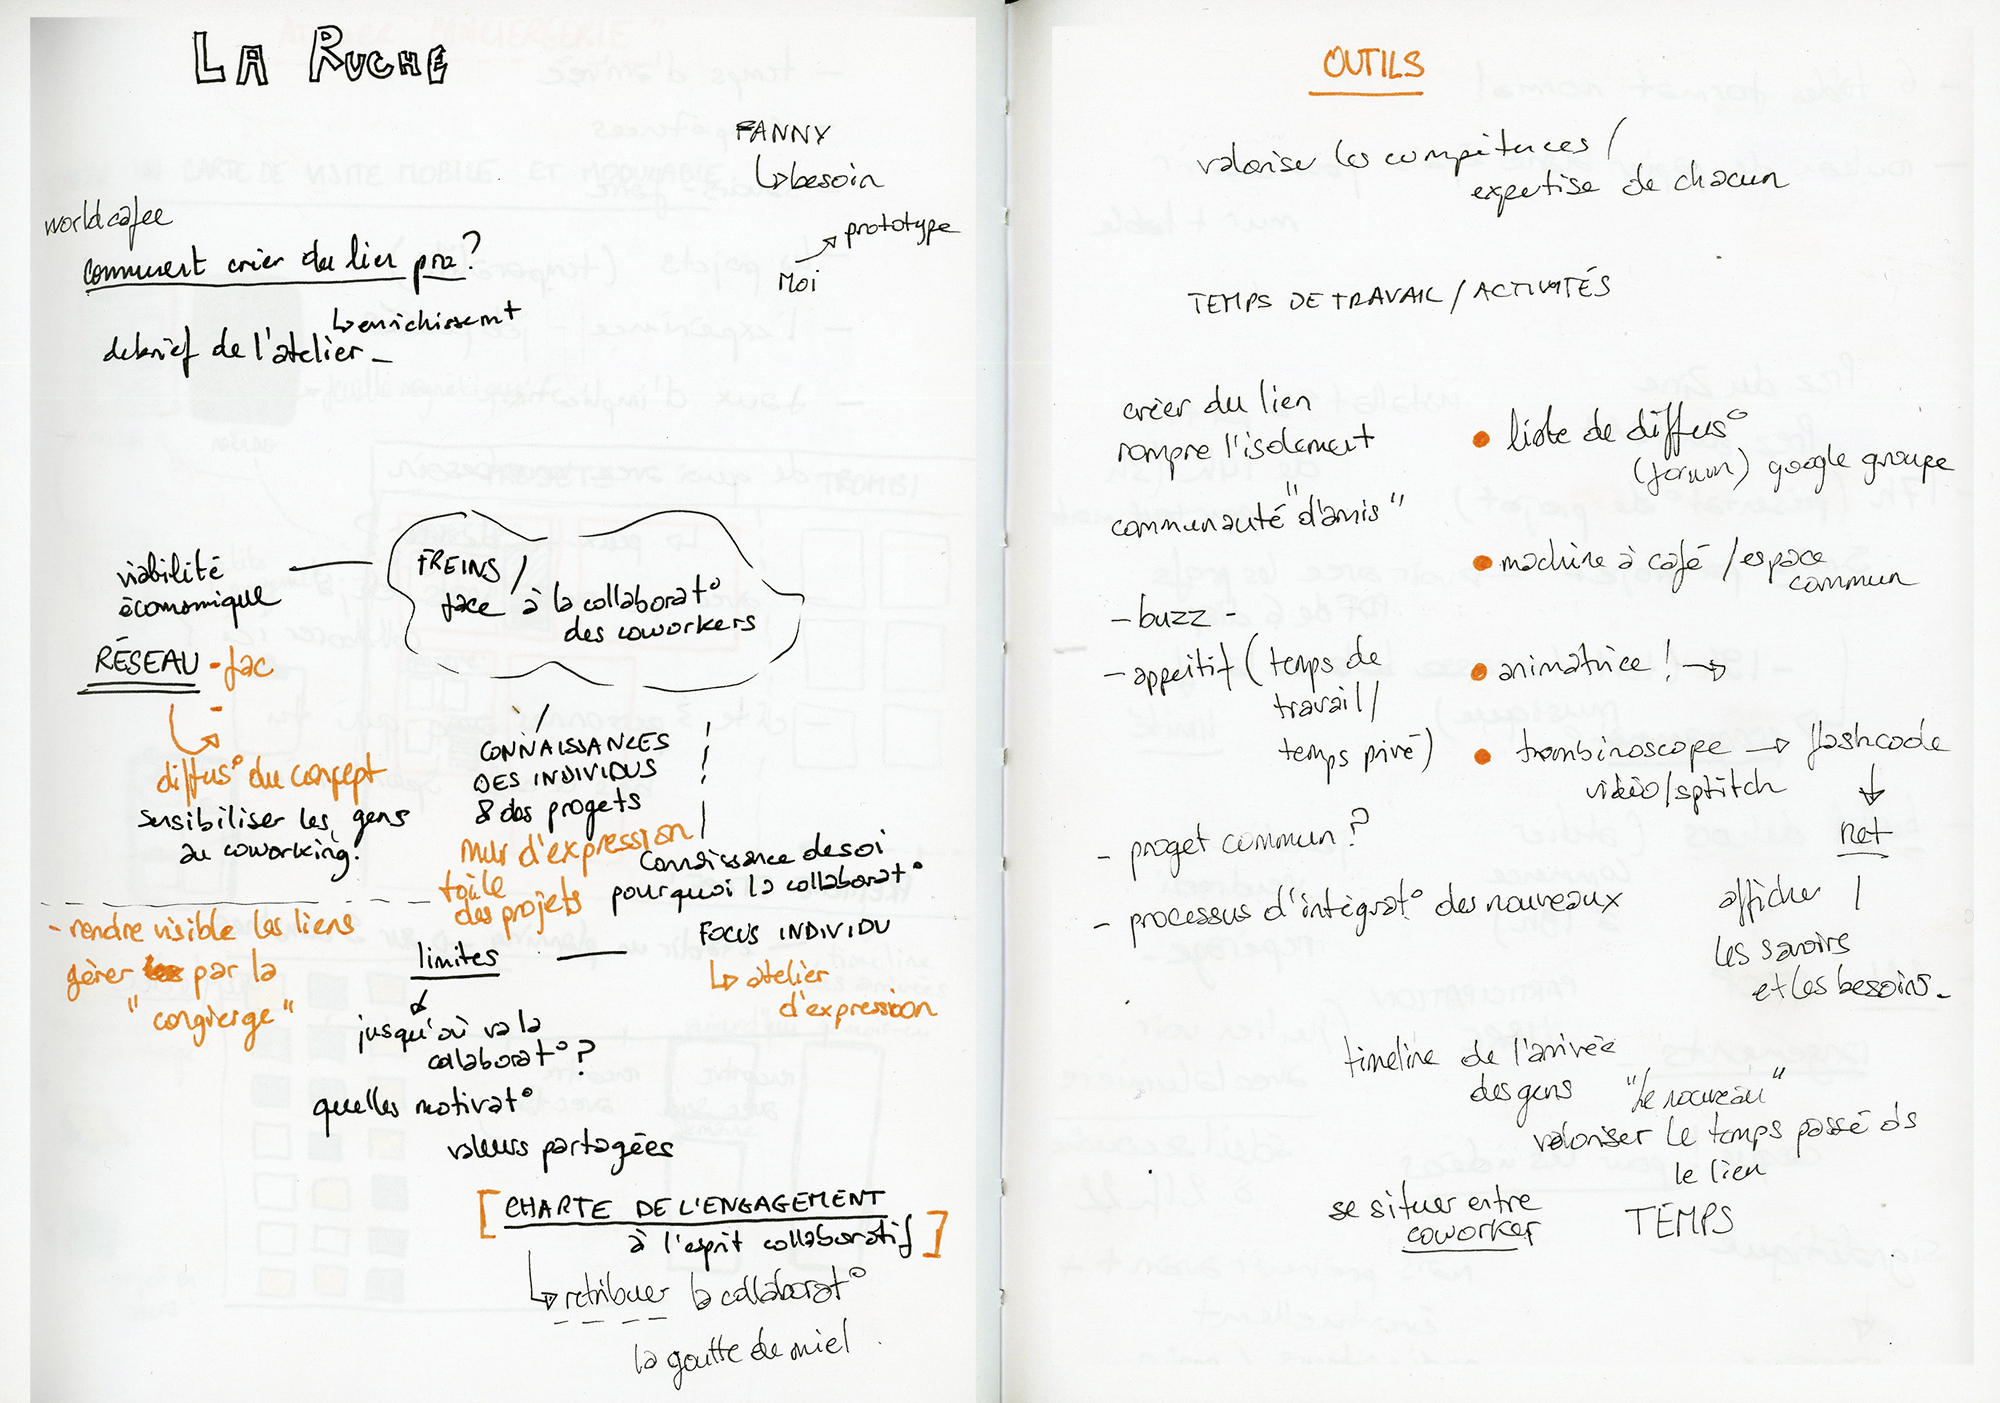 LA RUCHE
FANNY
↳ besoin
worldcafee
comment créer du lien pro?
↳ enrichissemt
debrief de l'atelier –
prototype
MOI
viabilité
économique
RÉSEAU - fac
FREINS /
face à la collaborat°
des coworkers
diffus° du concept
sensibiliser les gens
au coworking.
CONNAISSANCES
DES INDIVIDUS
& des progets
mur d'expression
toile
des projets
connaissance de soi
pourquoi la collaborat°
FOCUS INDIVIDU
↳ atelier
d'expression
- rendre visible les liens
gérer par la
"congierge"
limites
jusqu'où va la
collaborat° ?
quelles motivat°
valeurs partagées
[CHARTE DE L'ENGAGEMENT
à l'esprit collaboratif]
↳ retribuer la collaborat°
la goutte de miel
OUTILS
valoriser les compétences /
expertise de chacun
TEMPS DE TRAVAIL / ACTIVITÉS
créer du lien
rompre l'isolement
communauté "d'amis"
- buzz -
- apperitif (temps de
travail /
temps privé)
• liste de diffus°
(forum) google groupe
• machine à café / espace
commun
• animatrice ! →
• trombinoscope → flashcode
vidéo/sptitch
net
- proget commun ?
- processus d'intégrat° des nouveaux
afficher
les savoirs
et les besoins.
timeline de l'arrivée
des gens "le nouveau"
valoriser le temps passé ds
le lien
se situer entre
coworker
TEMPS